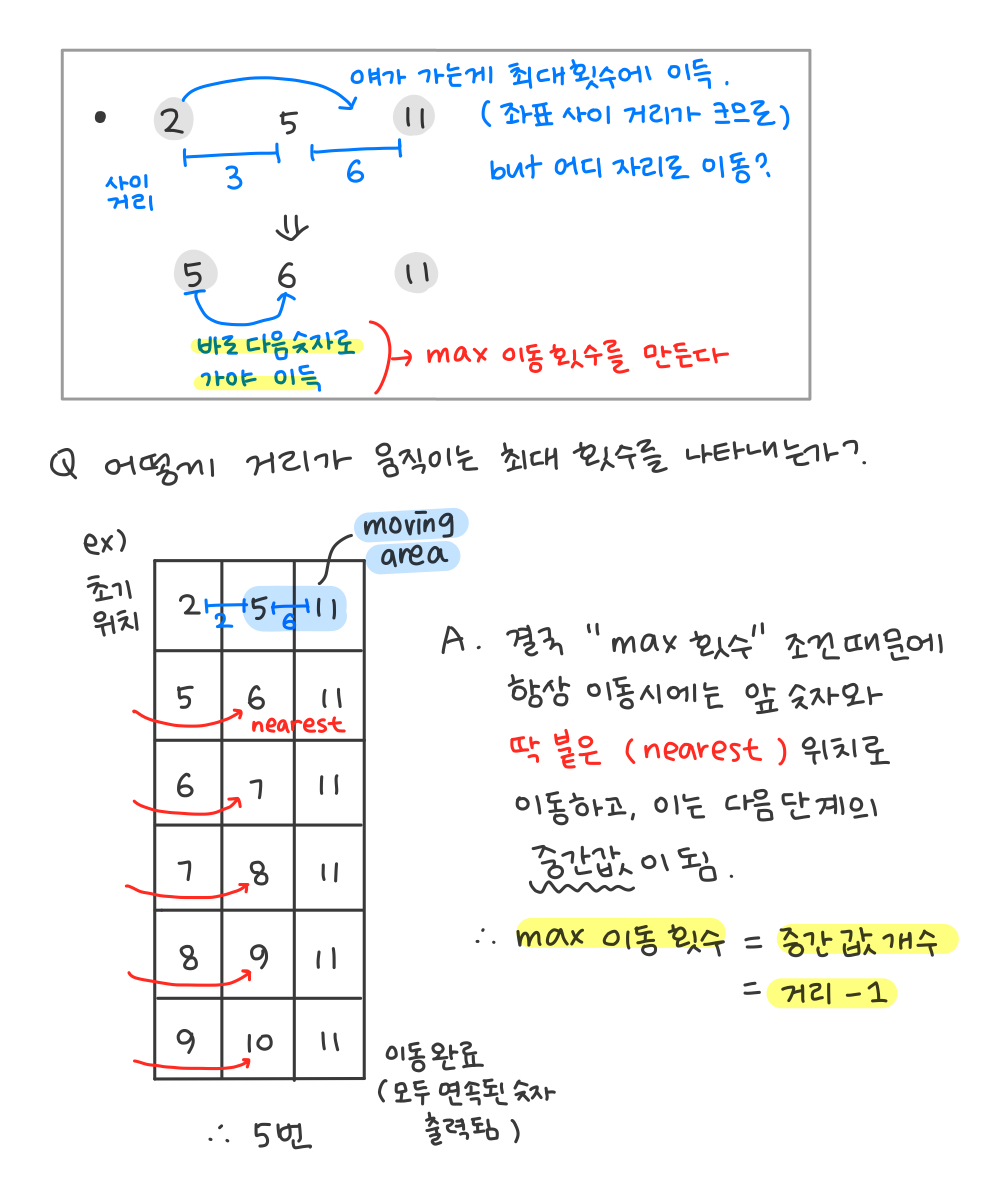 • 2 5 11
얘가 가는게 최대횟수에 이득.
(좌표 사이 거리가 크므로)
but 어디 자리로 이동?
사이
거리
3 6
⇓
5 6 11
바로 다음숫자로
가야 이득
→ max 이동횟수를 만든다
Q 어떻게 거리가 움직이는 최대 횟수를 나타내는가?
ex)
moving
area
초기
위치
2 5 11
2 6
5 6 11
nearest
6 7 11
7 8 11
8 9 11
9 10 11
이동완료
(모두 연속된 숫자
출력됨)
∴ 5번
A. 결국 "max 횟수" 조건때문에
항상 이동시에는 앞 숫자와
딱 붙은 (nearest) 위치로
이동하고, 이는 다음단계의
중간값이 됨.
∴ max 이동 횟수 = 중간값개수
= 거리 -1